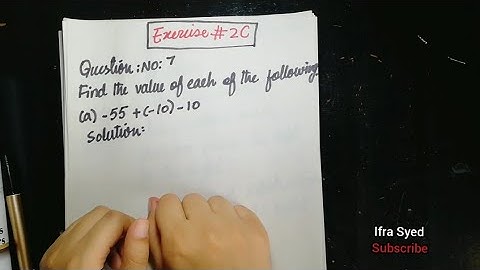 Exercise #2C
Question: NO: 7
Find the value of each of the following.
(a) -55 +(-10) -10
Solution:
Ifra Syed
Subscribe